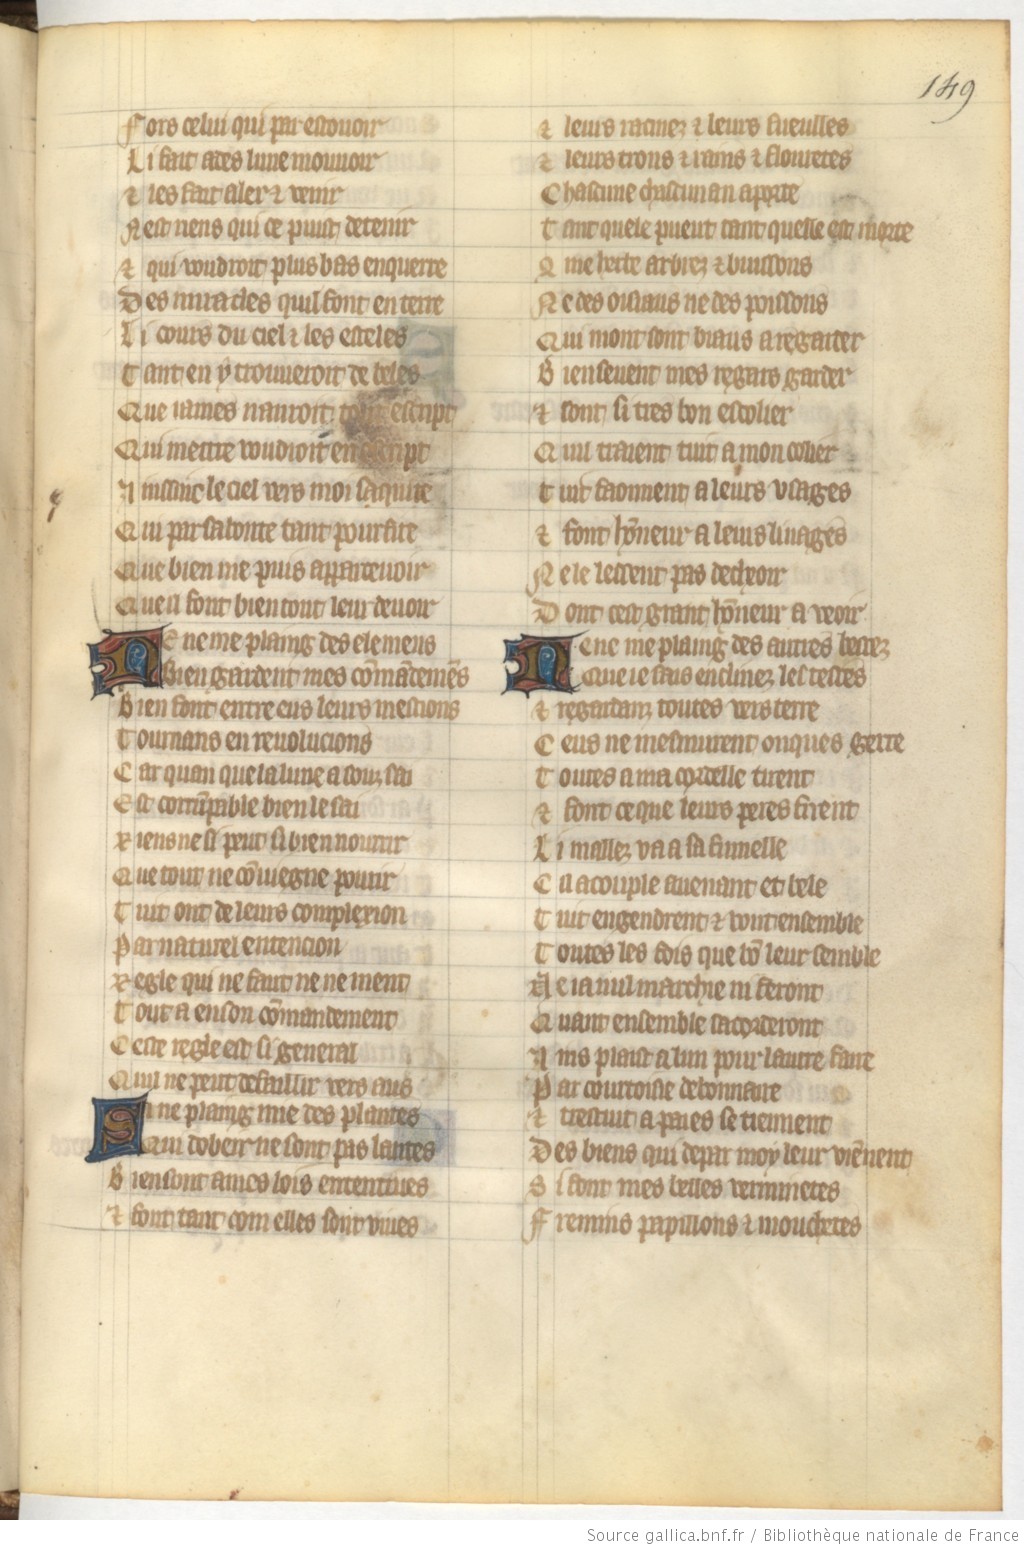 149
Fors celui qui par estouoir
Li fait ades lune mouuoir
⁊ les fait aler ⁊ venir
Nest riens qui ce puist detenir
⁊ qui voudroit plus bas enquerre
Des miracles quil font en terre
Li cours du ciel ⁊ les esteles
Tant en y trouueroit de beles
Que iames nauroit tout escript
Qui mettre voudroit en escript
Ainssinc le ciel vers moi saquite
Qui par sa bonte tant pourfite
Que bien me puis apparceuoir
Que il font bien tout leur deuoir
Ne me plaing des elemens
Bien gardent mes cōmādemēs
Bien font entre eus leurs mestions
Tournans en reuolucions
Car quan que la lune a souz sai
Est corrūpable bien le sai
Riens ne si peut si bien nourrir
Que tout ne cōuiegne pourrir
Tuit ont de leurs complexion
Par naturel entencion
Regle qui ne faut ne ne ment
Tout a en son cōmandement
Ceste regle est si general
Quil ne peut defaillir vers aus
Si ne plaing mie des plantes
Qui dobeir ne sont pas lantes
Bien sont a mes lois ententiues
⁊ font tant com elles sont viues
⁊ leurs racinez ⁊ leurs fueulles
⁊ leurs trons ⁊ rains ⁊ flouretes
Chascune chascun an aporte
Tant quele pueut tant quelle est morte
Ne ces oisiaus ne ces poissons
Qui mont sont biaus a regarder
Bien seuent mes regars garder
⁊ sont si tres bon escolier
Quil traient tuit a mon colier
Tuit faonnent a leurs vsages
⁊ font hōneur a leurs linages
Ne le lessent pas decheoir
Dont cest grant hōneur a veoir
Ne me plaing des autres bestez
Que ie fais enclinez les testes
⁊ regardanz toutes vers terre
Ceus ne mesmurent onques gerre
Toutes a ma cordelle tirent
⁊ font ce que leurs peres firent
Li mallez va a sa fumelle
Cil a couple auenant et bele
Tuit engendrent ⁊ vont ensemble
Toutes les fois que bō leur semble
Ne ia nul marchie ni feront
Quant ensemble sacorderont
Ains plaist a lun pour lautre faire
Par courtoisie debonnaire
⁊ trestuit a paies se tiennent
Des biens qui de par moy leur viēnent
Si font mes belles verminetes
Fremins papillons ⁊ mouchetes
Source gallica.bnf.fr / Bibliothèque nationale de France